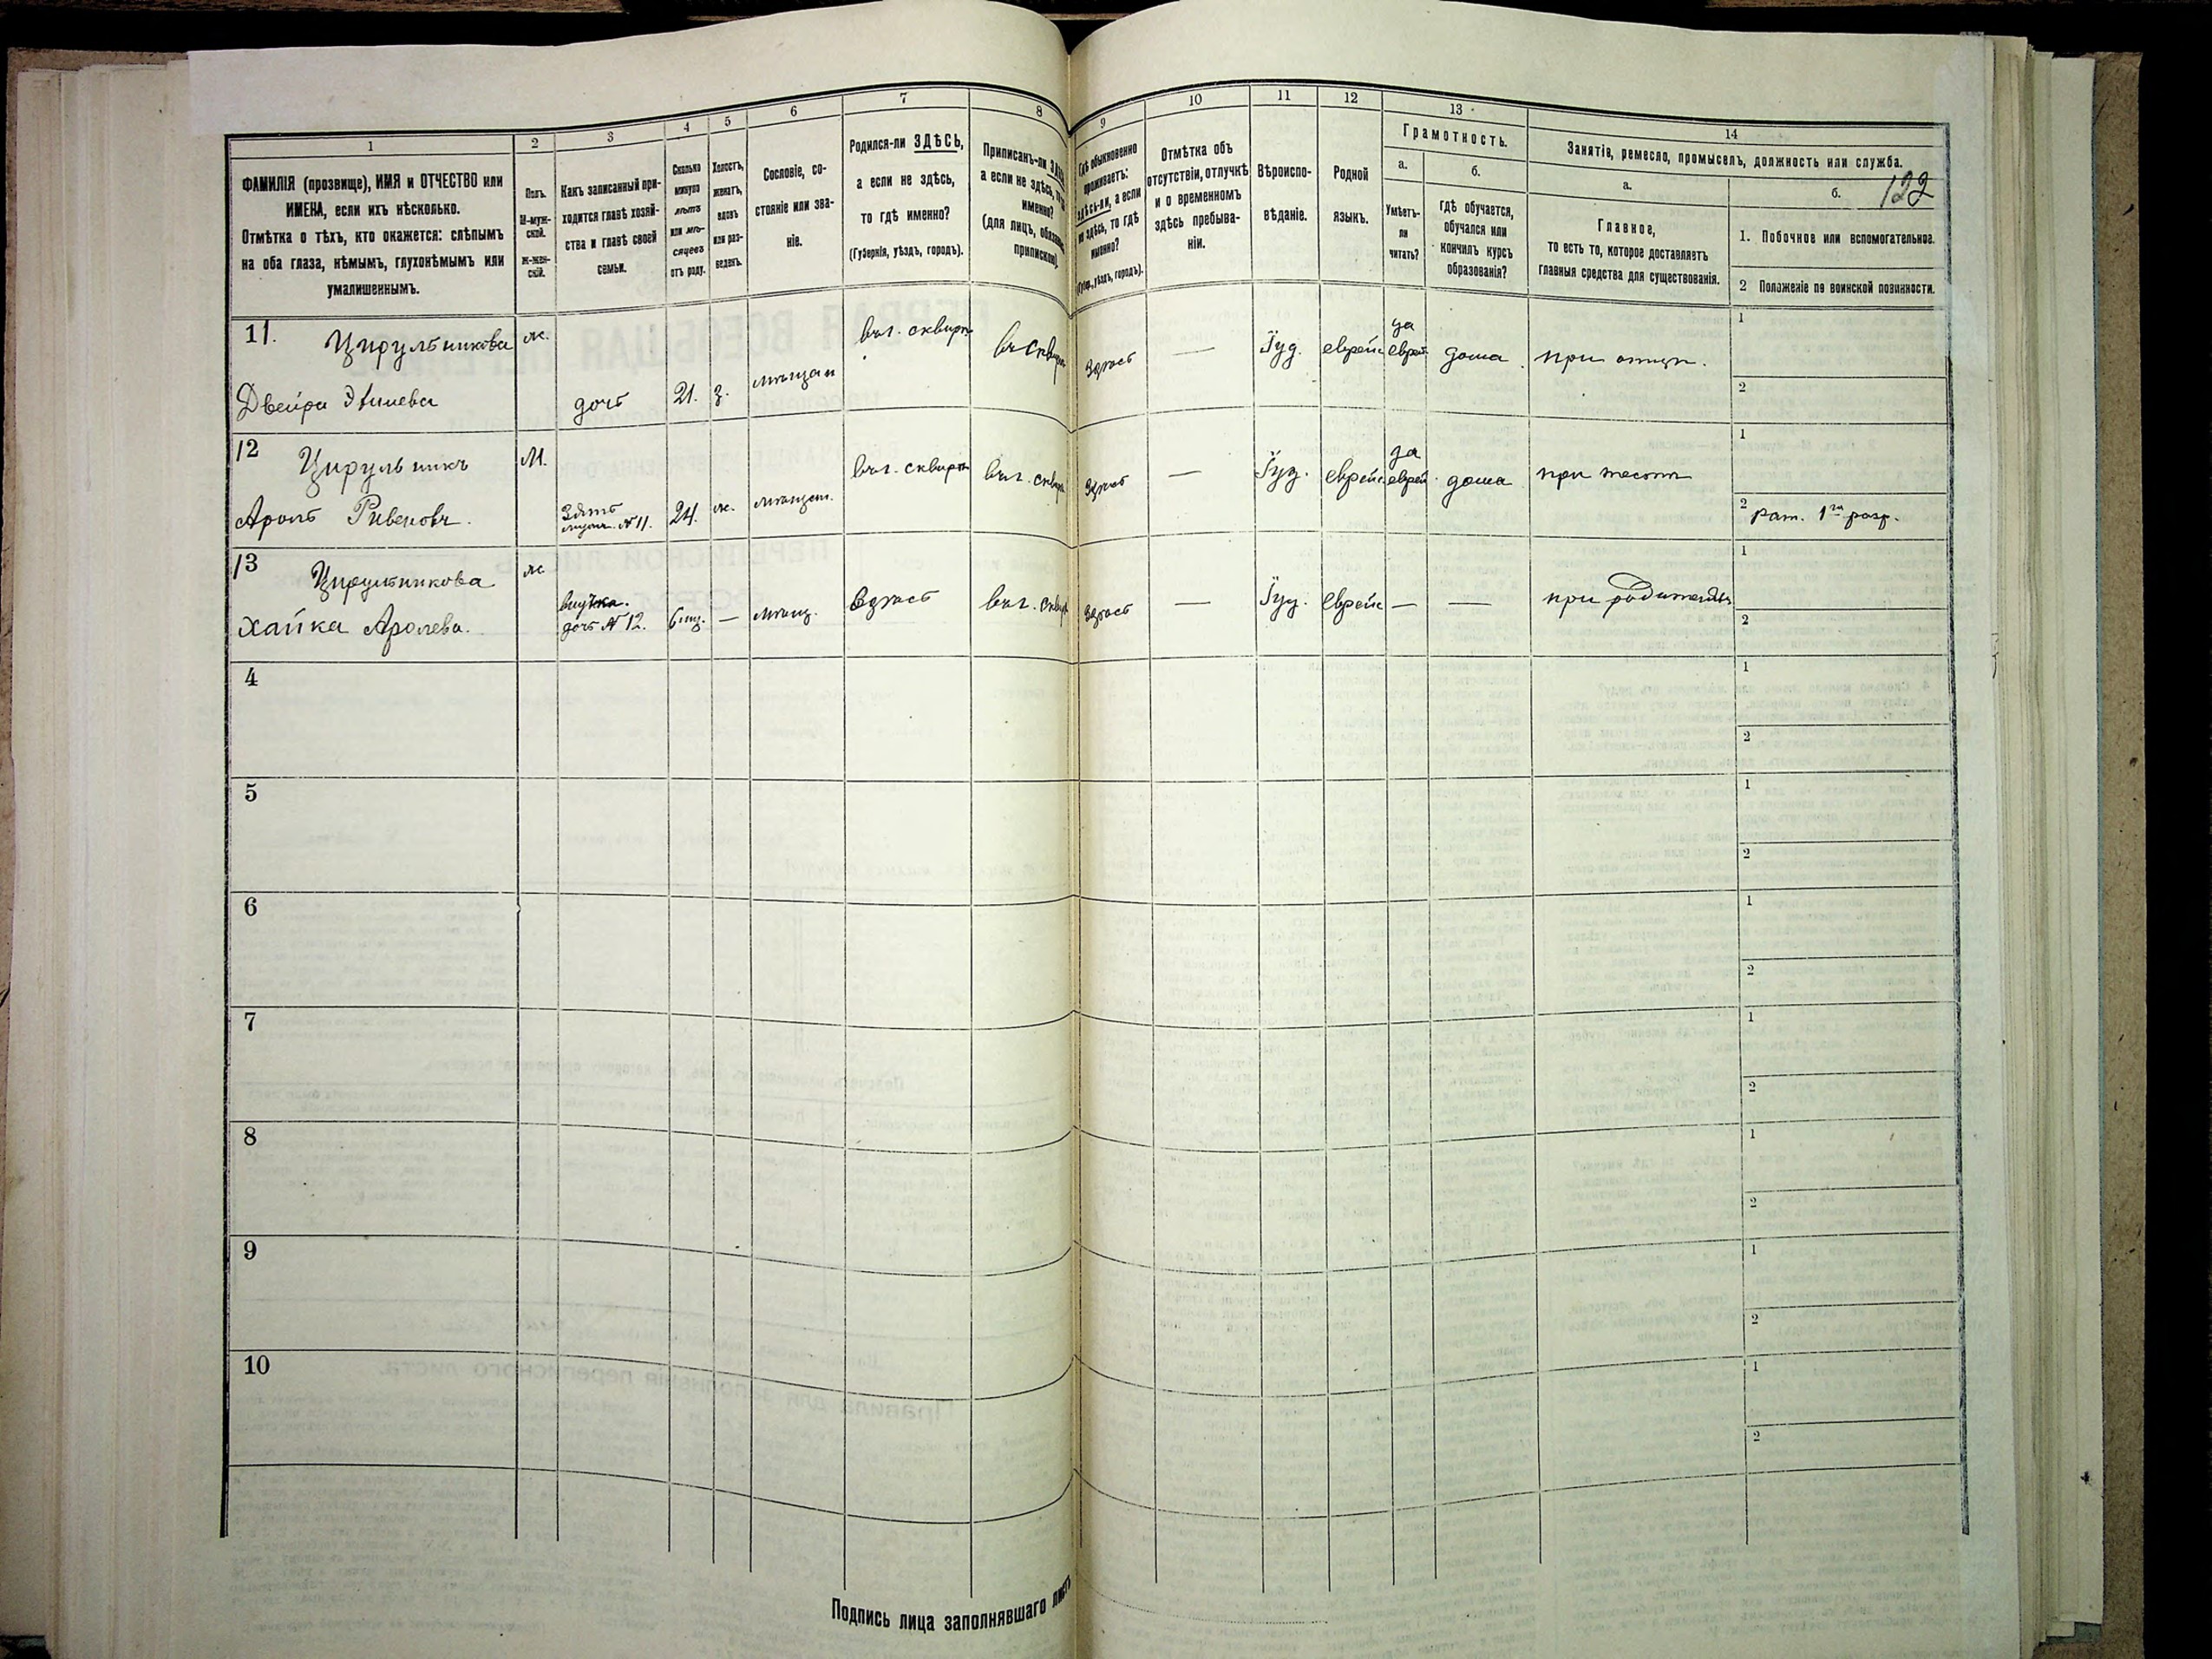 122
1
ФАМИЛІЯ (прозвище), ИМЯ и ОТЧЕСТВО или
ИМЕНА, если ихъ нѣсколько.
Отмѣтка о тѣхъ, кто окажется: слѣпымъ
на оба глаза, нѣмымъ, глухонѣмымъ или
умалишеннымъ.
2
Полъ.
М-муж-
ской.
ж-жен-
скій.
3
Какъ записанный при-
ходится главѣ хозяй-
ства и главѣ своей
семьи.
4
Сколько
минуло
лѣтъ
или мѣ-
сяцевъ
отъ роду.
5
Холостъ,
женатъ,
вдовъ
или раз-
веденъ.
6
Сословіе, со-
стояніе или зва-
ніе.
7
Родился-ли ЗДѢСЬ,
а если не здѣсь,
то гдѣ именно?
(Губернія, уѣздъ, городъ).
8
Приписанъ-ли
а если не здѣсь,
именно?
(для лицъ,
9
Гдѣ обыкновенно
проживаетъ:
здѣсь-ли, а если
не здѣсь, то гдѣ
именно?
10
Отмѣтка объ
отсутствіи, отлучкѣ
и о временномъ
здѣсь пребыва-
ніи.
11
Вѣроиспо-
вѣданіе.
12
Родной
языкъ.
13
Грамотность.
а.
Умѣетъ-
ли
читать?
б.
гдѣ обучается,
обучался или
кончилъ курсъ
образованія?
14
Занятіе, ремесло, промыселъ, должность или служба.
а.
Главное,
то есть то, которое доставляетъ
главныя средства для существованія.
б.
1. Побочное или вспомогательное.
2 Положеніе по воинской повинности.
11.
Цирульникова
Двейра
ж.
дочь
21.
з.
мѣщан
въ г. сквирѣ
Здѣсь
—
Іуд.
еврейс
да
еврей
дома
при отцѣ.
1
2
12
Цирульникъ
Аронъ Рувеновъ.
М.
Зять
№ 11.
24.
ж.
мѣщан.
въ г. сквирѣ
въ г.
Здѣсь
—
Іуд.
еврейс
да
еврей
дома
при тестѣ
1
2 рат. 1го разр.
13
Цирульникова
Хайка Аронева.
ж
внучка.
дочь № 12.
6 мц.
—
мѣщ.
Здѣсь
въ г.
Здѣсь
—
Іуд.
еврейс
—
—
при родителяхъ
1
2
4
1
2
5
1
2
6
1
2
7
1
2
8
1
2
9
1
2
10
1
2
Подпись лица заполнявшаго листъ